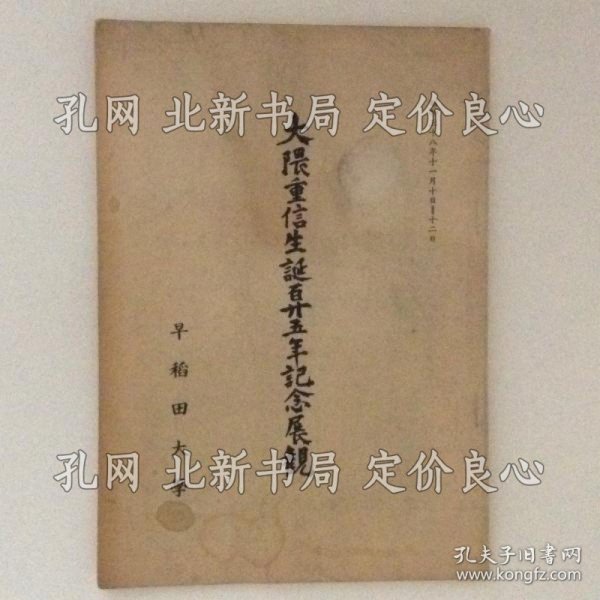 孔网 北新书局 定价良心
八年十一月十日至十二日
大隈重信生誕百廿五年記念展観
早稲田大学
孔网 北新书局 定价良心
孔夫子旧书网
www.kongfz.com